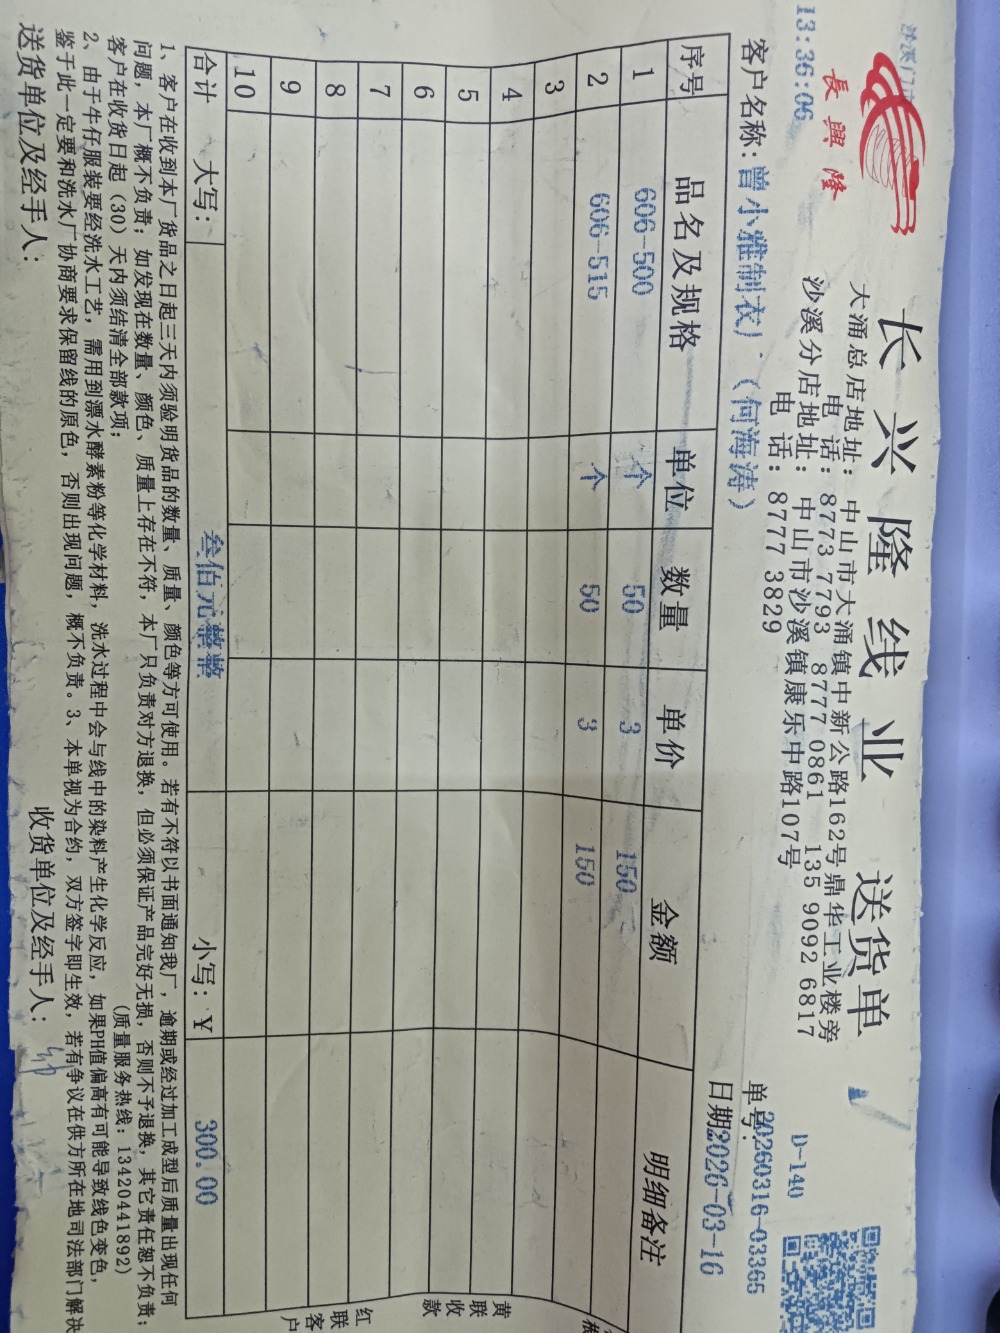 沙溪门
13:36:06
長興隆
长兴隆线业 送货单
大涌总店地址：中山市大涌镇中新公路162号鼎华工业楼旁
电 话：8773 7793 8777 0861 135 9092 6817
沙溪分店地址：中山市沙溪镇康乐中路107号
电 话：8777 3829
D-140
单号：20260316-03365
客户名称：曾小雅制衣厂（何海涛）
日期2026-03-16
序号 品名及规格 单位 数量 单价 金额 明细备注
1 606-500 个 50 3 150
2 606-515 个 50 3 150
3
4
5
6
7
8
9
10
合计 大写： 叁佰元整整 小写：¥ 300.00
黄联收款
红联客户
1、客户在收到本厂货品之日起三天内须验明货品的数量、质量、颜色等方可使用。若有不符以书面通知我厂，逾期或经过加工成型后质量出现任何
问题，本厂概不负责；如发现在数量、颜色、质量上存在不符，本厂只负责对方退换，但必须保证产品完好无损，否则不予退换，其它责任恕不负责；
客户在收货日起（30）天内须结清全部款项； （质量服务热线：13420441892）
2、由于牛仔服装要经洗水工艺，需用到漂水酵素粉等化学材料，洗水过程中会与线中的染料产生化学反应，如果PH值偏高有可能导致线色变色，
鉴于此一定要和洗水厂协商要求保留线的原色，否则出现问题，概不负责。3、本单视为合约，双方签字即生效，若有争议在供方所在地司法部门解决
送货单位及经手人： 收货单位及经手人：